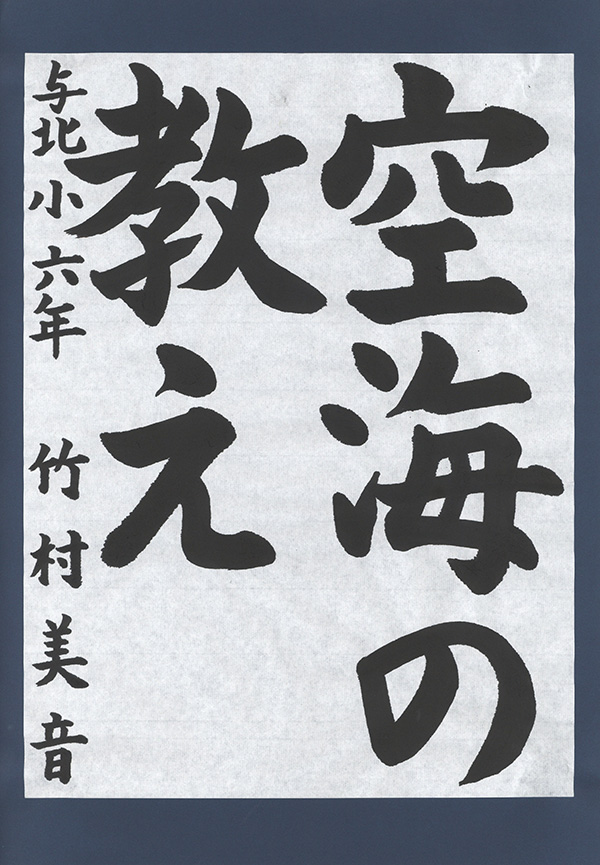 空海の
教え
与北小六年 竹村美音